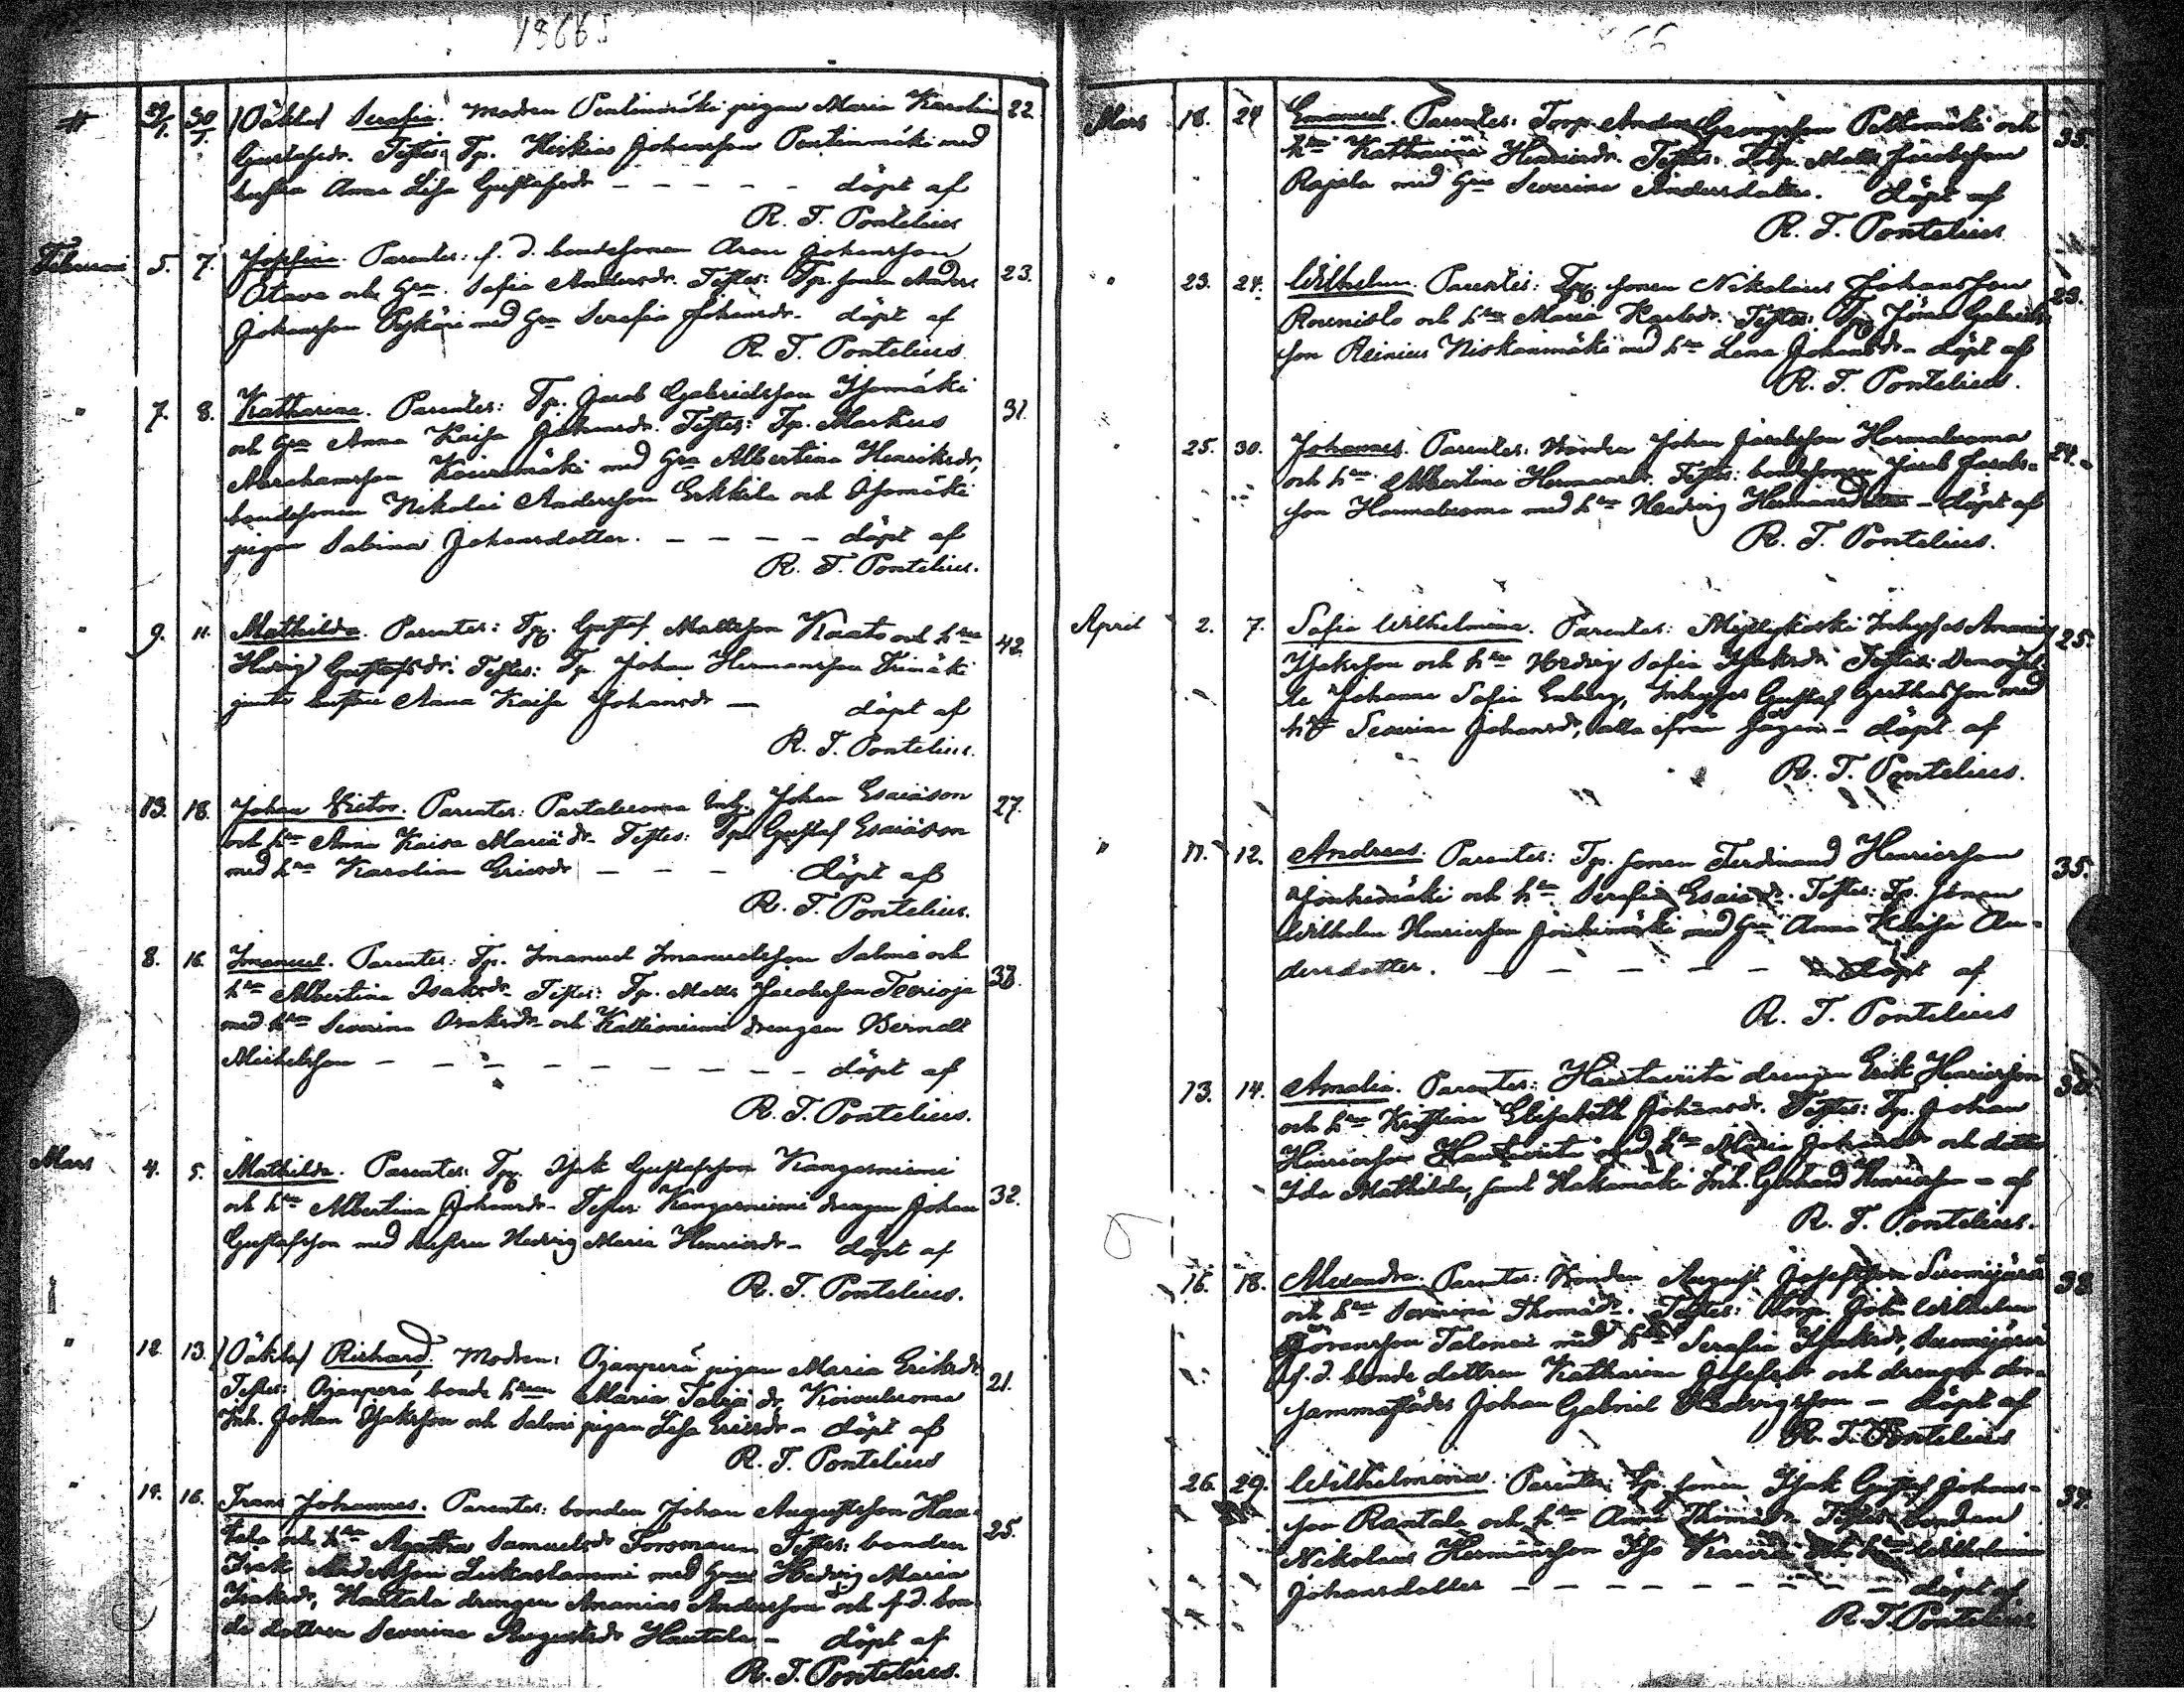 1866
29/1. 30/1. (Oäkta) Serafia. Modren Pentinmäki pigan Maria Karolina 22.
Gustafsdr. Testes: Tp. Heskias Johansson Pentinmäki med
hustru Anna Lisa Gustafsdr – – – – – döpt af
R. T. Pontelius
Februari 5. 7. Josefina. Parentes: f. d. bondesonen Aron Johansson 23.
Otava och hra. Sofia Andersdr. Testes: Tp. sonen Anders
Johansson med hra Serafia Johansdr – döpt af
R. T. Pontelius
" 7. 8. Katharina. Parentes: Tp. Jacob Gabrielsson Isomäki 31.
och hra Anna Kaisa Johansdr. Testes: Tp. Markus
Abrahamsson med hra Albertina Henriksdr,
bondesonen Nikolai Andersson Erkkila och Isomäki
pigan Sabina Johansdotter. – – – – döpt af
R. T. Pontelius.
" 9. 11. Mathilda. Parentes: Tp. Gustaf Mattsson Kaato och hra 42.
Hedvig Gustafsdr. Testes: Tp. Johan Hermansson
jemte hustru Anna Kaisa Johansdr – döpt af
R. T. Pontelius.
13. 18. Johan Victor. Parentes: Partaluoma Inh. Johan Esaiäson 27.
och hra Anna Kaisa Mariädr – Testes: Tp. Gustaf Esaiäson
med hra Karolina Ericsdr – – – döpt af
R. T. Pontelius.
8. 16. Imanuel. Parentes: Tp. Imanuel Imanuelsson Salmi och 33.
hra Albertina Isaksdr – Testes: Tp. Matts Jacobsson Teerioja
med hra Severina Isaksdr – och Kattioniemi drengen Berndt
Michelsson – – – – – – – – – döpt af
R. T. Pontelius.
Mars 4. 5. Mathilda. Parentes: Tp. Isak Gustafsson Kangasniemi 32.
och hra Albertina Johansdr – Testes: Kangasniemi drengen Johan
Gustafsson med hustru Hedvig Maria Henricsdr – döpt af
R. T. Pontelius.
" 12. 13. (Oäkta) Richard. Modren: Ojanperä pigan Maria Eriksdr 21.
Testes: Ojanperä bonde Maria dr, Koivuluoma
Inh. Johan Isaksson och Salmi pigan Lisa Ericsdr – döpt af
R. T. Pontelius
" 14. 16. Frans Johannes. Parentes: bonden Johan Augustsson Hau- 25.
tala och hra Agatha Samuelsdr Forsman Testes: bonden
Isak Andersson Luhtaslammi med hra Hedvig Maria
Isaksdr, Hautala drengen Ananias Andersson och f. d. bon-
de dottren Severina Augustsdr Hautala – döpt af
R. T. Pontelius.
66
Mars 18. 24. Emanuel. Parentes: Torp. Anders Georgsson Peltomäki och 35.
hra Katharina Henricsdr. Testes: Torp. Matts Jacobsson
Rajala med hra Severina Andersdotter. döpt af
R. T. Pontelius
" 23. 24. Wilhelm. Parentes: Tp. sonen Nikolaus Johansson 23.
Rounisto och hra Maria Karlsdr. Testes: Tp. Jöran Gabriels-
son Reinius Niskanmäki med hra Lena Johansdr – döpt af
R. T. Pontelius.
" 25. 30. Johannes. Parentes: bonden Johan Jacobsson Harmaluoma 24.
och hra Albertina Hermansdr. Testes: bondesonen Jacob Jacobs-
son Harmaluoma med hra Hedvig Hermansdotter – döpt af
R. T. Pontelius.
April 2. 7. Sofia Wilhelmina. Parentes: Myllykoski Inhyses Ananias 25.
Isaksson och hra Hedvig Sofia Isaksdr. Testes: Demoisel-
le Johanna Sofia Enberg, Inhyses Gustaf med
hra Severina Johansdr, alla ifrån – döpt af
R. T. Pontelius.
" 11. 12. Andreas. Parentes: Tp. sonen Ferdinand Henricsson 35.
Jonkimäki och hra Serafia Esaiädr. Testes: Tp. sonen
Wilhelm Henricsson Jonkimäki med hra Anna Kaisa An-
dersdotter. – – – – – döpt af
R. T. Pontelius
13. 14. Amalia. Parentes: Hautaviita drengen Erik Henricsson
och hra Kristina Elisabeth Johansdr. Testes: Tp. Johan
Henricsson Hautaviita med hra Maria Johansdr och dotter
Ida Mathilda, samt Hakamäki Inh. Gerhard Henricsson – af
R. T. Pontelius.
16. 18. Alexandra. Parentes: bonden August Josefsson Suomijärvi 38.
och hra Severina Thomädr. Testes: Torp. Joh. Wilhelm
Göransson Talonen med hra Serafia Isaksdr, Suomijärvi
f. d. bonde dottren Katharina Josefsdr och drengen der-
sammastädes Johan Gabriel Hedvigsson – döpt af
R. T. Pontelius
26. 29. Wilhelmina. Parentes: Tp. sonen Isak Gustaf Johans- 37.
son Rantala och hra Anna Thomädr Testes: bonden
Nikolaus Hermansson Iso och hra Wilhelmina
Johansdotter – – – – – – – – döpt af
R. T. Pontelius